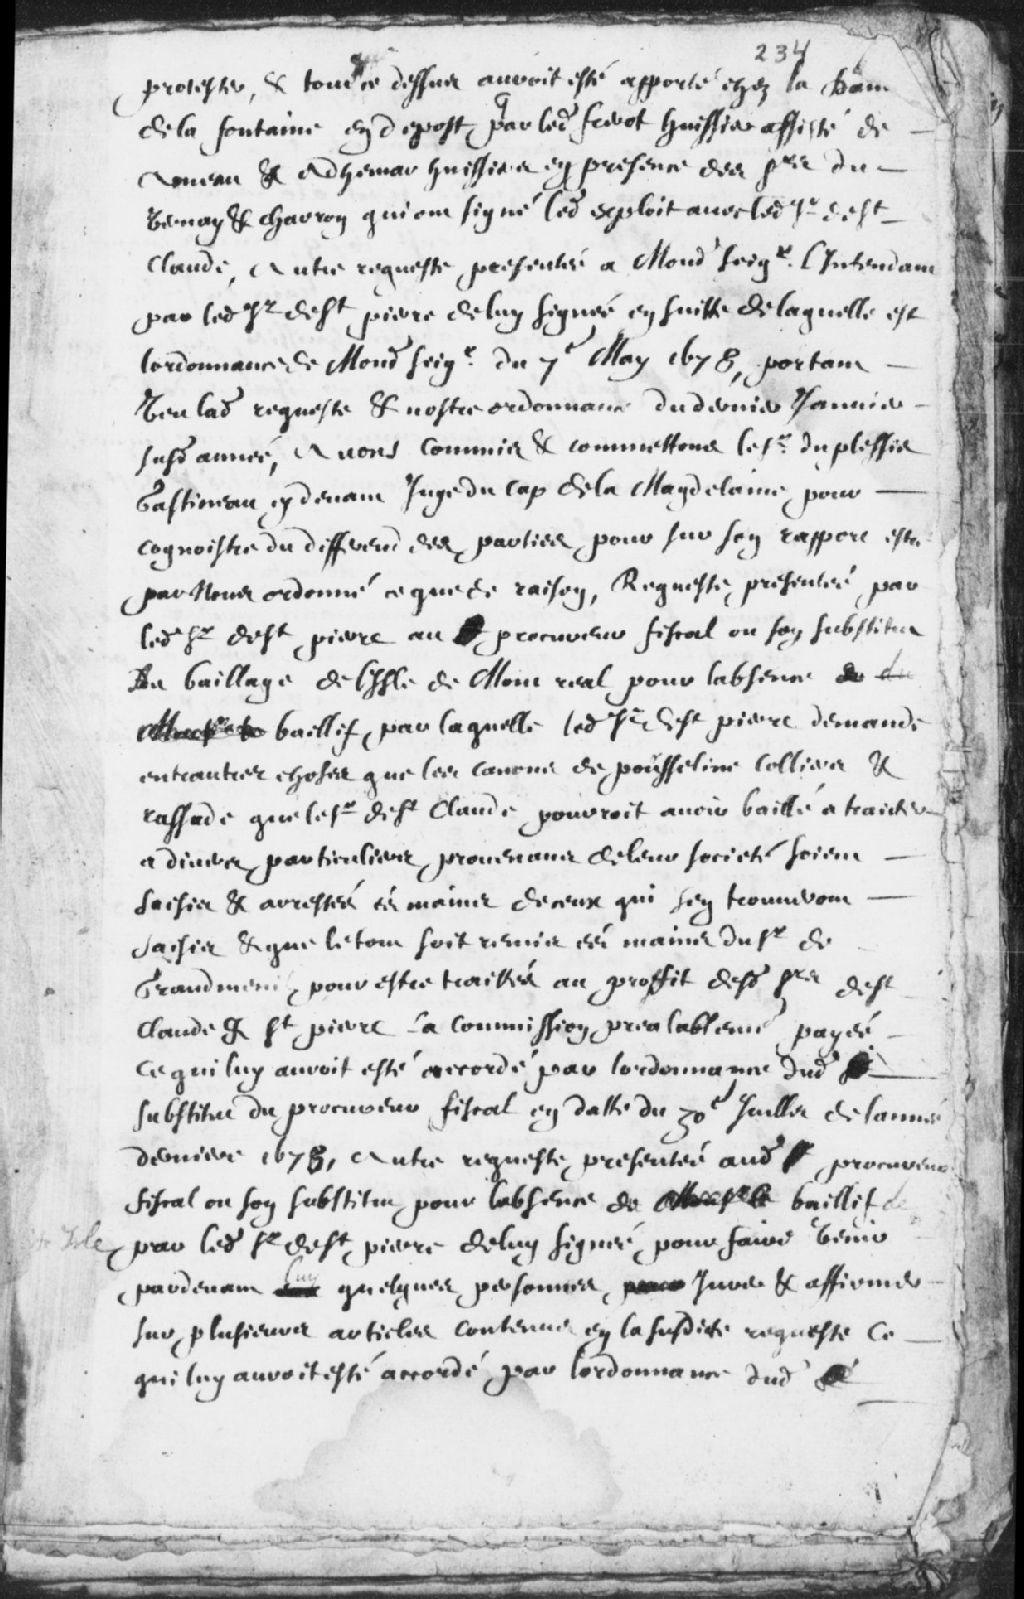 234
protester, & tout ce dessus auroit esté apporté chez la Dame
de la fontaine en depost par led. huissier assisté de
Rmeau & Adhemar huissiers en presence des srs du
Vernay & charron qui ont signé led exploit auec led sr de st
Claude, Autre requeste presenteé a Mond seigr. l'Intendant
par led sr de st pierre de luy signeé en suitte de laquelle est
lordonnance de Mond seigr. du 7e May 1678, portant
Veu lad requeste & nostre ordonnance du dernier Januier
susd anneé, Auons commis & commettons le sr. duplessis
Gastineau cy deuant Juge du Cap de la Magdelaine pour
cognoistre du differend des parties pour sur son rapport estre
par Nous ordonné ce que de raison, Requeste presenteé par
led sr de st pierre au procureur fiscal ou son substitut
Au baillage de l'Isle de Mont real pour labsence de du
baillif, par laquelle led sr de st pierre demande
entrautres choses que les canons de pousseline colliers &
rassade que le sr de st Claude pourroit auoir baillé a traiter
a diuers particuliers prouenans de leur societé soient
saisies & arrestés es mains de ceux qui sen trouueront
saisies & que le tout soit remis ees mains du sr de
Grandmeni, pour estre traittés au proffit desd srs de st
Claude & st pierre la commission prealablemt payeé
Ce qui luy auroit esté accordé par lordonnance dud
substitut du procureur fiscal en datte du 30e Juillet de lanneé
derniere 1678, Autre requeste presenteé aud procureur
fiscal ou son substitut pour labsence de baillif de
+ Isle
par led sr de st pierre de luy signeé pour faire Venir
pardeuant luy quelques personnes pour Jurer & affirmer
sur plusieurs articles contenus en la susdite requeste Ce
qui luy auroit esté accordé par lordonnance dud